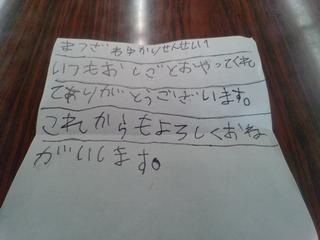 まつざわゆかりせんせい
いつもおしごとおやってくれ
てありがとうございます。
これからもよろしくおね
がいします。